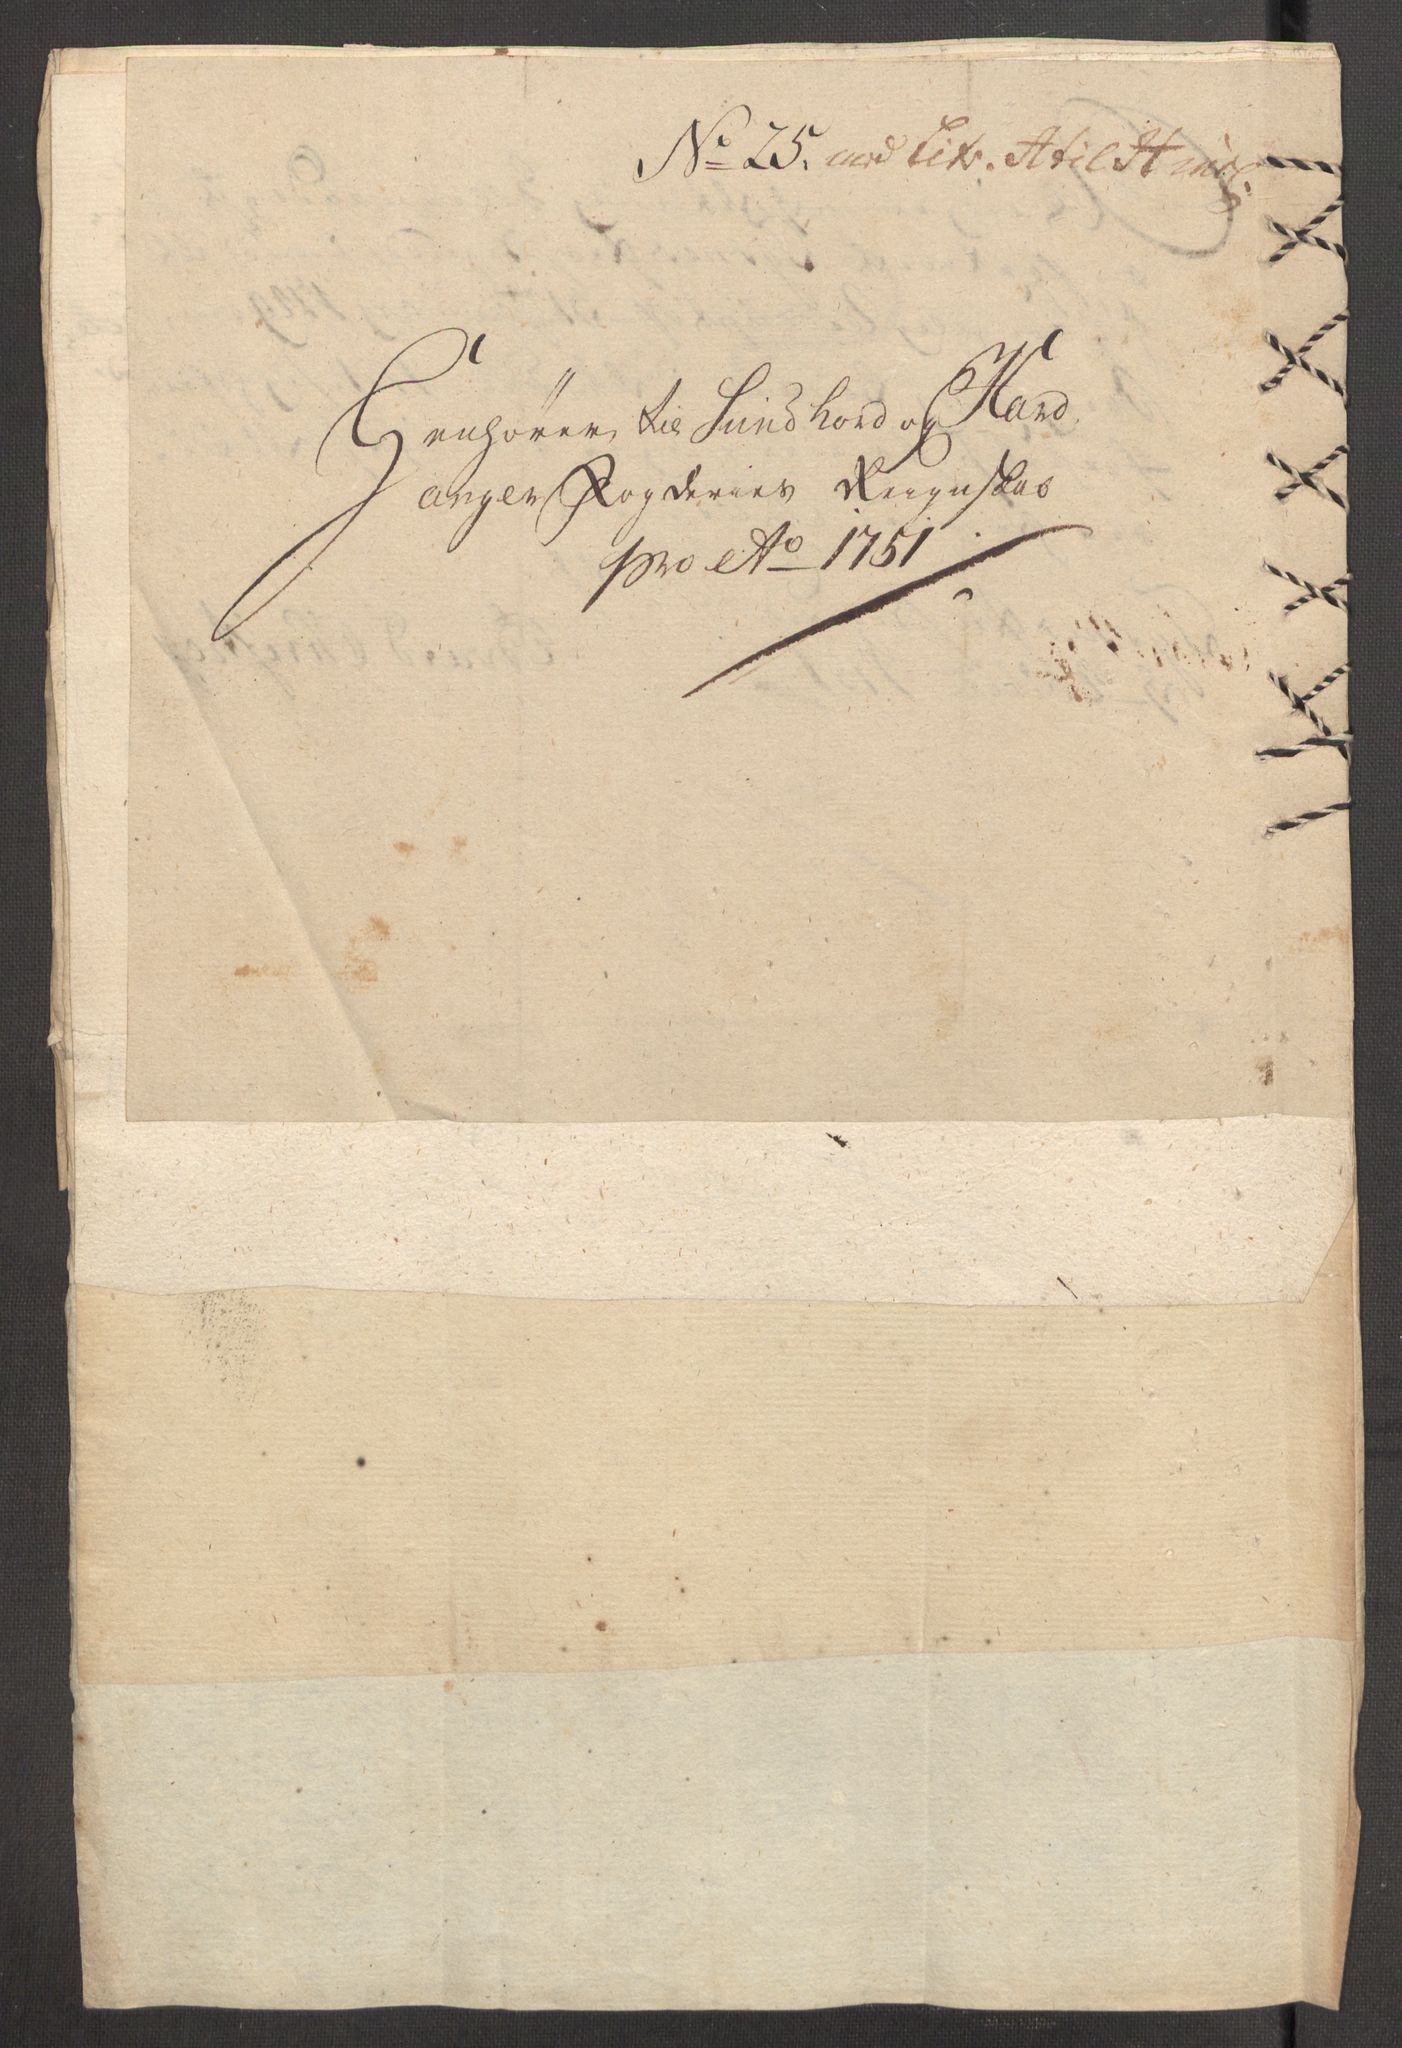 No 25. med Litr. A til H incl.
Henhörer til Sundhord og Hard
anger Fogderies Reignskab
pro Ao 1751